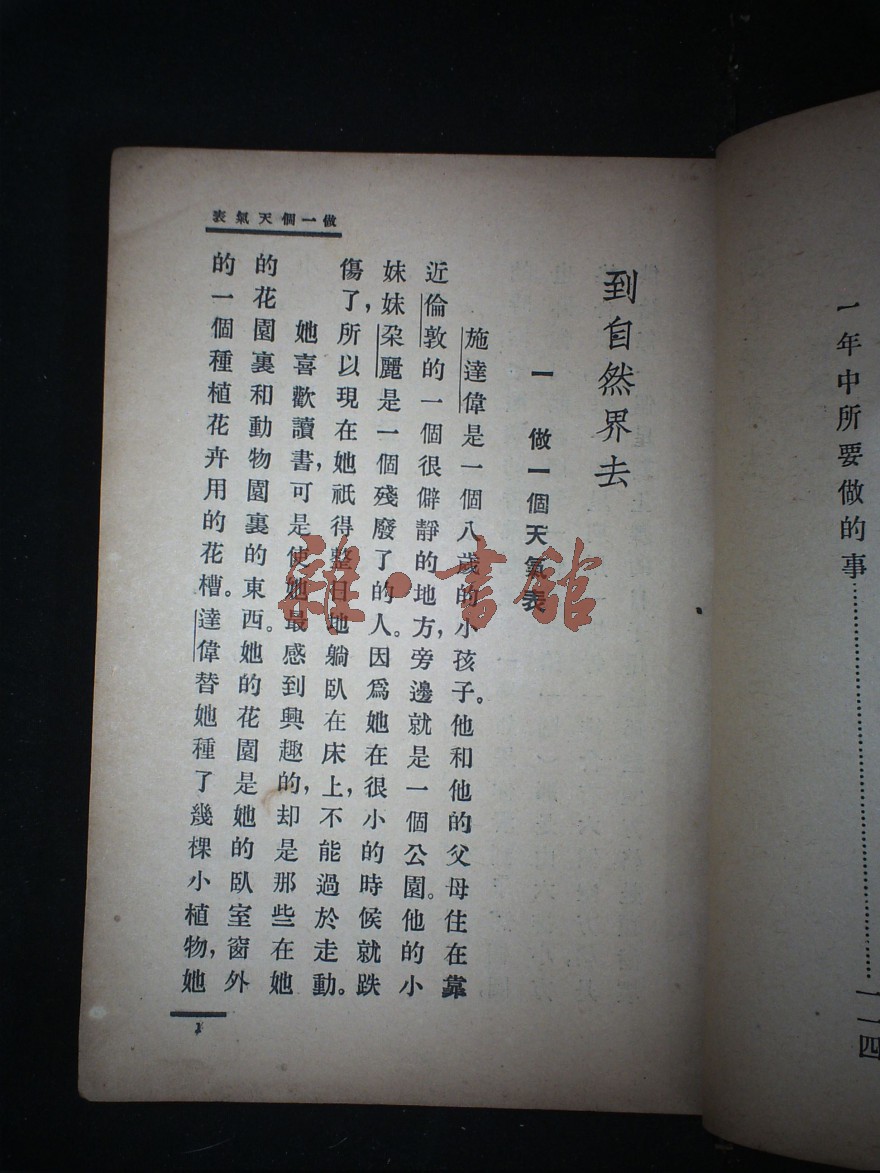 一年中所要做的事……………………一一四
到自然界去
一 做一個天氣表
施達偉是一個八歲的小孩子。他和他的父母住在靠
近倫敦的一個很僻靜的地方,旁邊就是一個公園。他的小
妹妹朶麗是一個殘廢了的人。因爲她在很小的時候就跌
傷了,所以現在她祇得整日地躺臥在床上,不能過於走動。
她喜歡讀書,可是使她最感到興趣的,却是那些在她
的花園裏和動物園裏的東西。她的花園是她的臥室窗外
的一個種植花卉用的花槽。達偉替她種了幾棵小植物,她
做一個天氣表
1
雜·書館